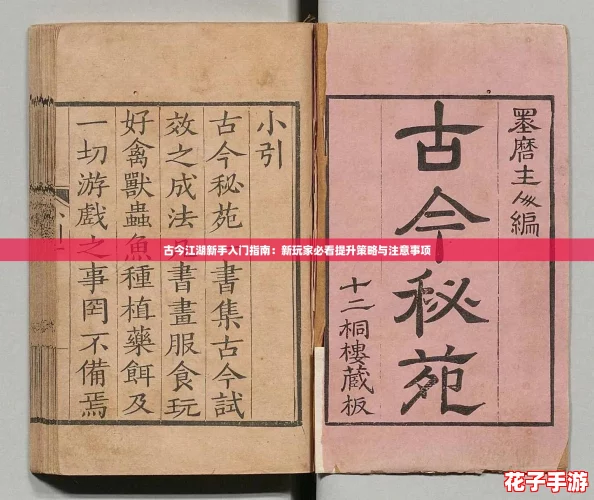 墨磨主人編
古今秘苑
十二桐樓藏板
小引
古今秘苑書集古今試
效之成法書畫服食玩
好禽獸蟲魚種植藥餌及
一切游戲之事罔不備焉
古今江湖新手入门指南：新玩家必看提升策略与注意事项
花子手游